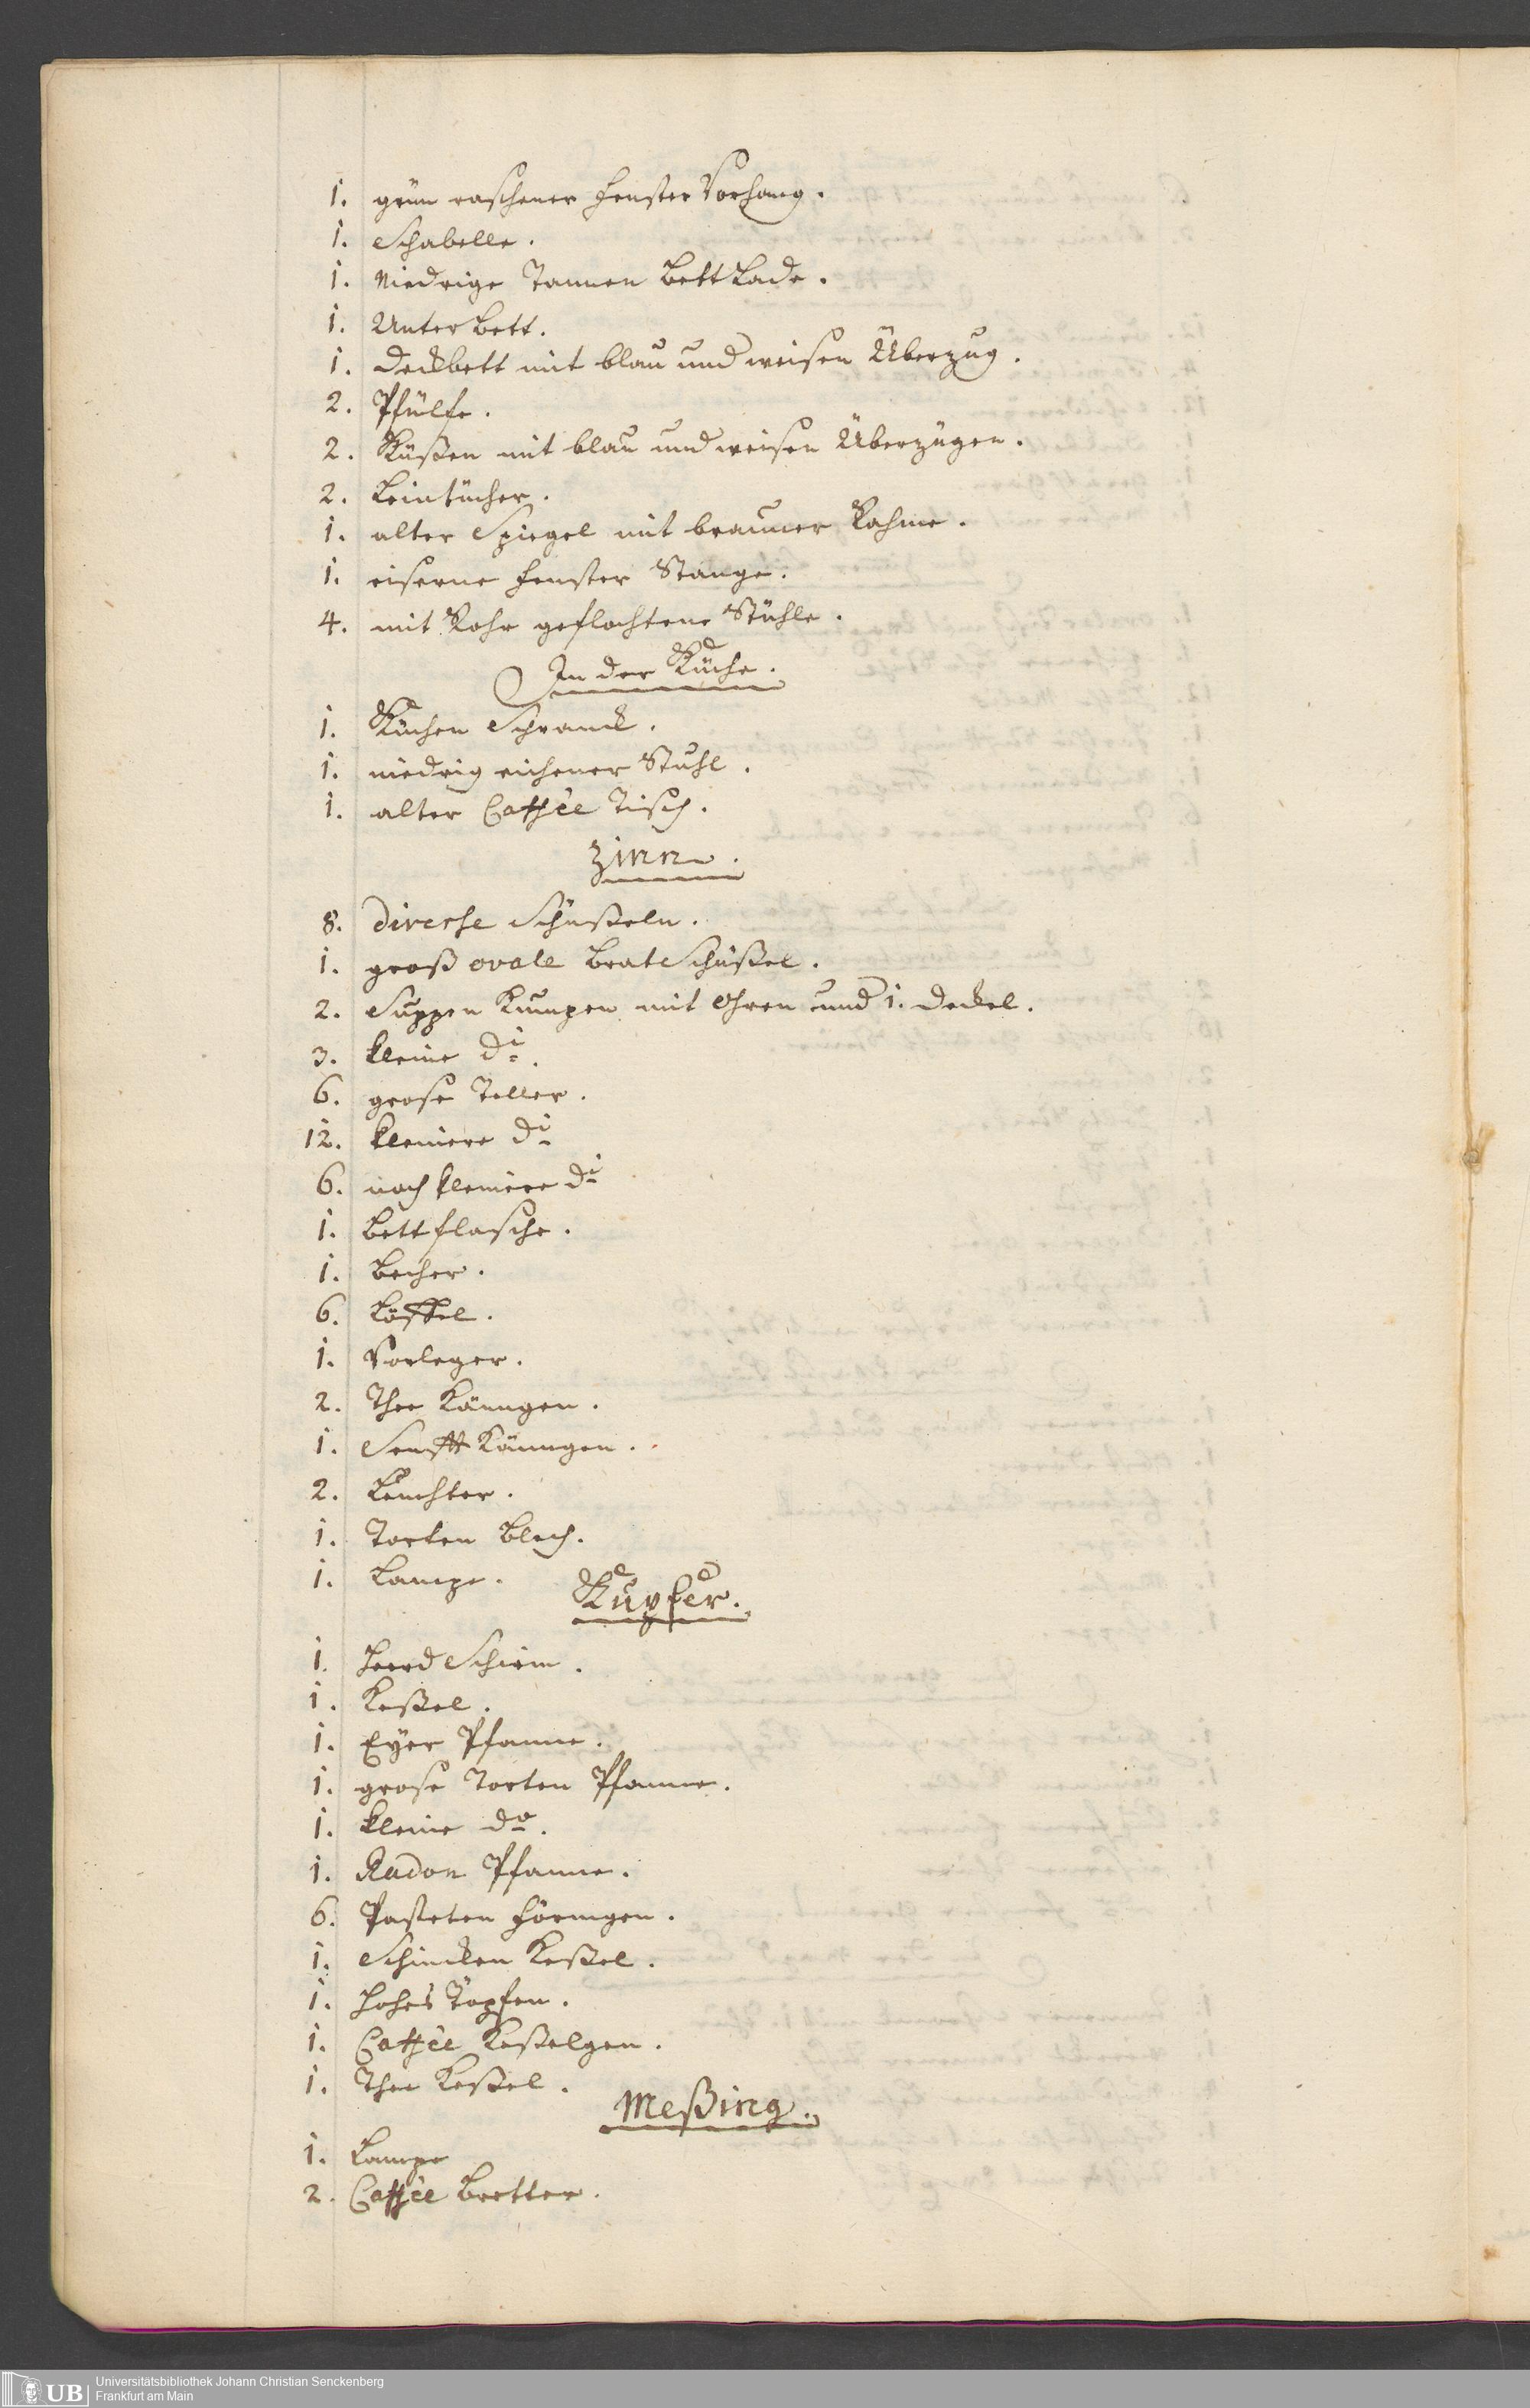 1. grün raschener Fenster Vorhang.
1. Schabelle.
1. Niedrige Tannen Bett Lade.
1. Unter Bett.
1. Deckbett mit blau und weisen Überzug.
2. Pfülfe.
2. Küßen mit blau und weisen Überzügen.
2. Leintücher.
1. alter Spiegel mit brauner Rahme.
1. eiserne Fenster Stange.
4. mit Rohr geflochtene Stühle.
In der Küche.
1. Küchen Schranck.
1. niedrig eichener Stuhl.
1. alter Caffée Tisch.
Zinn.
8. Diverse Schüßeln.
1. groß ovale Brat Schüßel.
2. Suppen Kumpen mit Ohren und 1. Deckel.
3. kleine di.
6. grose Teller.
12. kleinere di
6. noch kleinere di
1. Bettflasche.
1. Becher.
6. Löffel.
1. Vorleger.
2. Thee Känngen.
1. Senfft Känngen.
2. Leuchter.
1. Torten Blech.
1. Lampe.
Kupfer.
1. Heerd Schirm.
1. Keßel.
1. Eyer Pfanne.
1. grose Torten Pfanne.
1. kleine do.
1. Radon Pfanne.
6. Pasteten Förmgen.
1. Schincken Keßel.
1. hohes Töpfen.
1. Caffée Keßelgen.
1. Thee Keßel.
Meßing.
1. Lampe
2. Caffée Bretter.
Universitätsbibliothek Johann Christian Senckenberg
Frankfurt am Main
UB